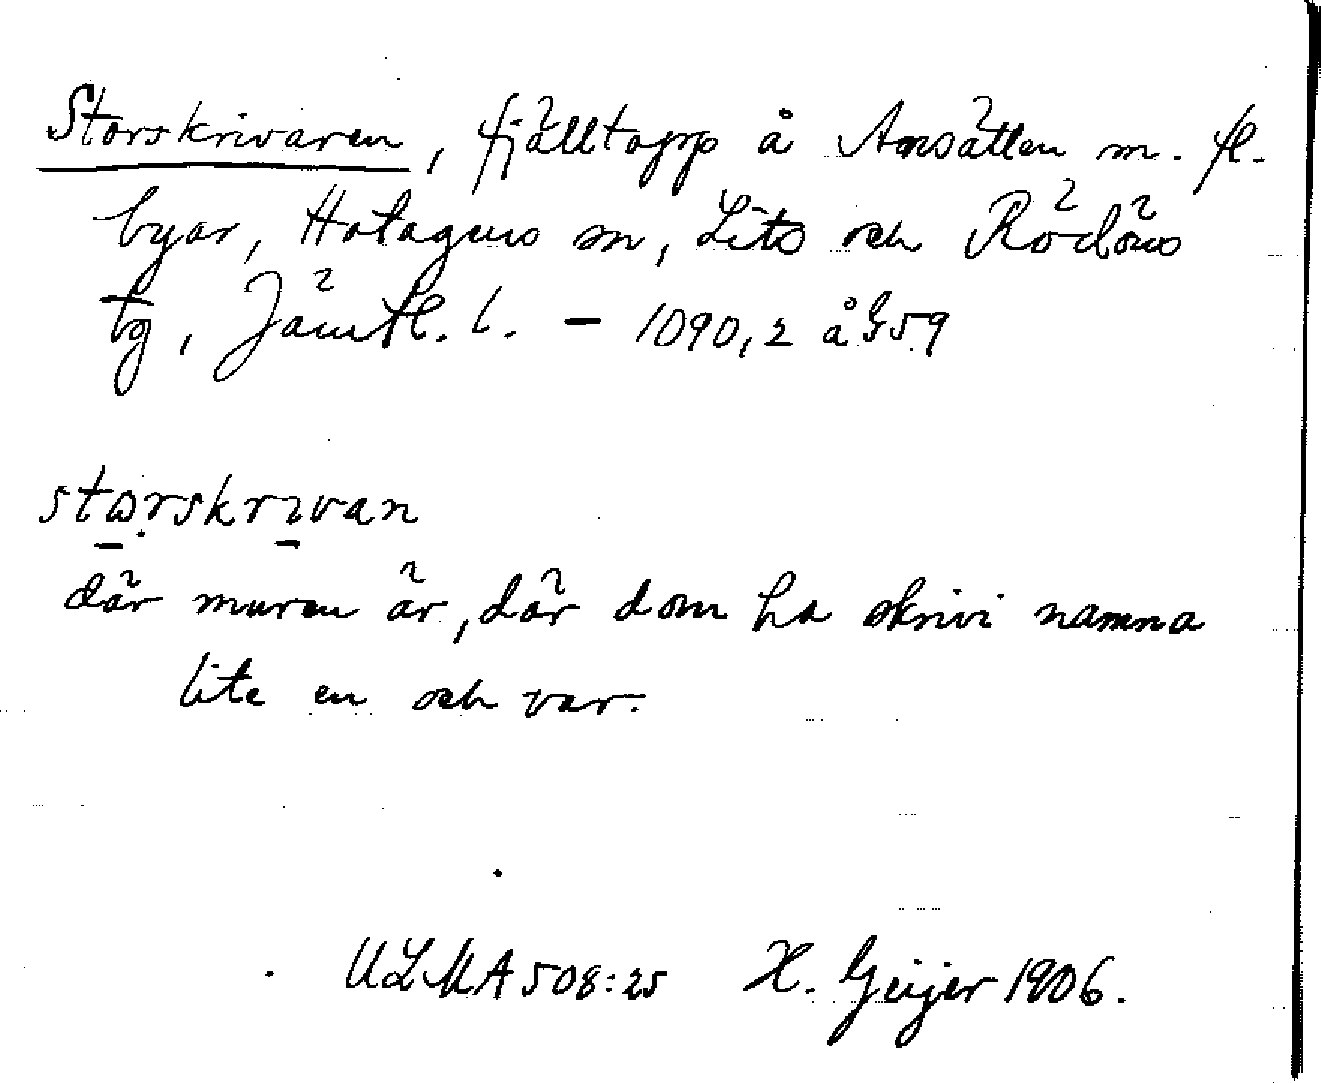 Storskrivaren, fjälltopp å Ansätten m. fl.
byar, Hotagens sn, Lits och Rödöns
tg, Jämtl. l. – 1090,2 å G59
storskrivan
där muren är, där dom ha skrivi namna
lite en och var.
ULMA 508:25 H. Geijer 1906.